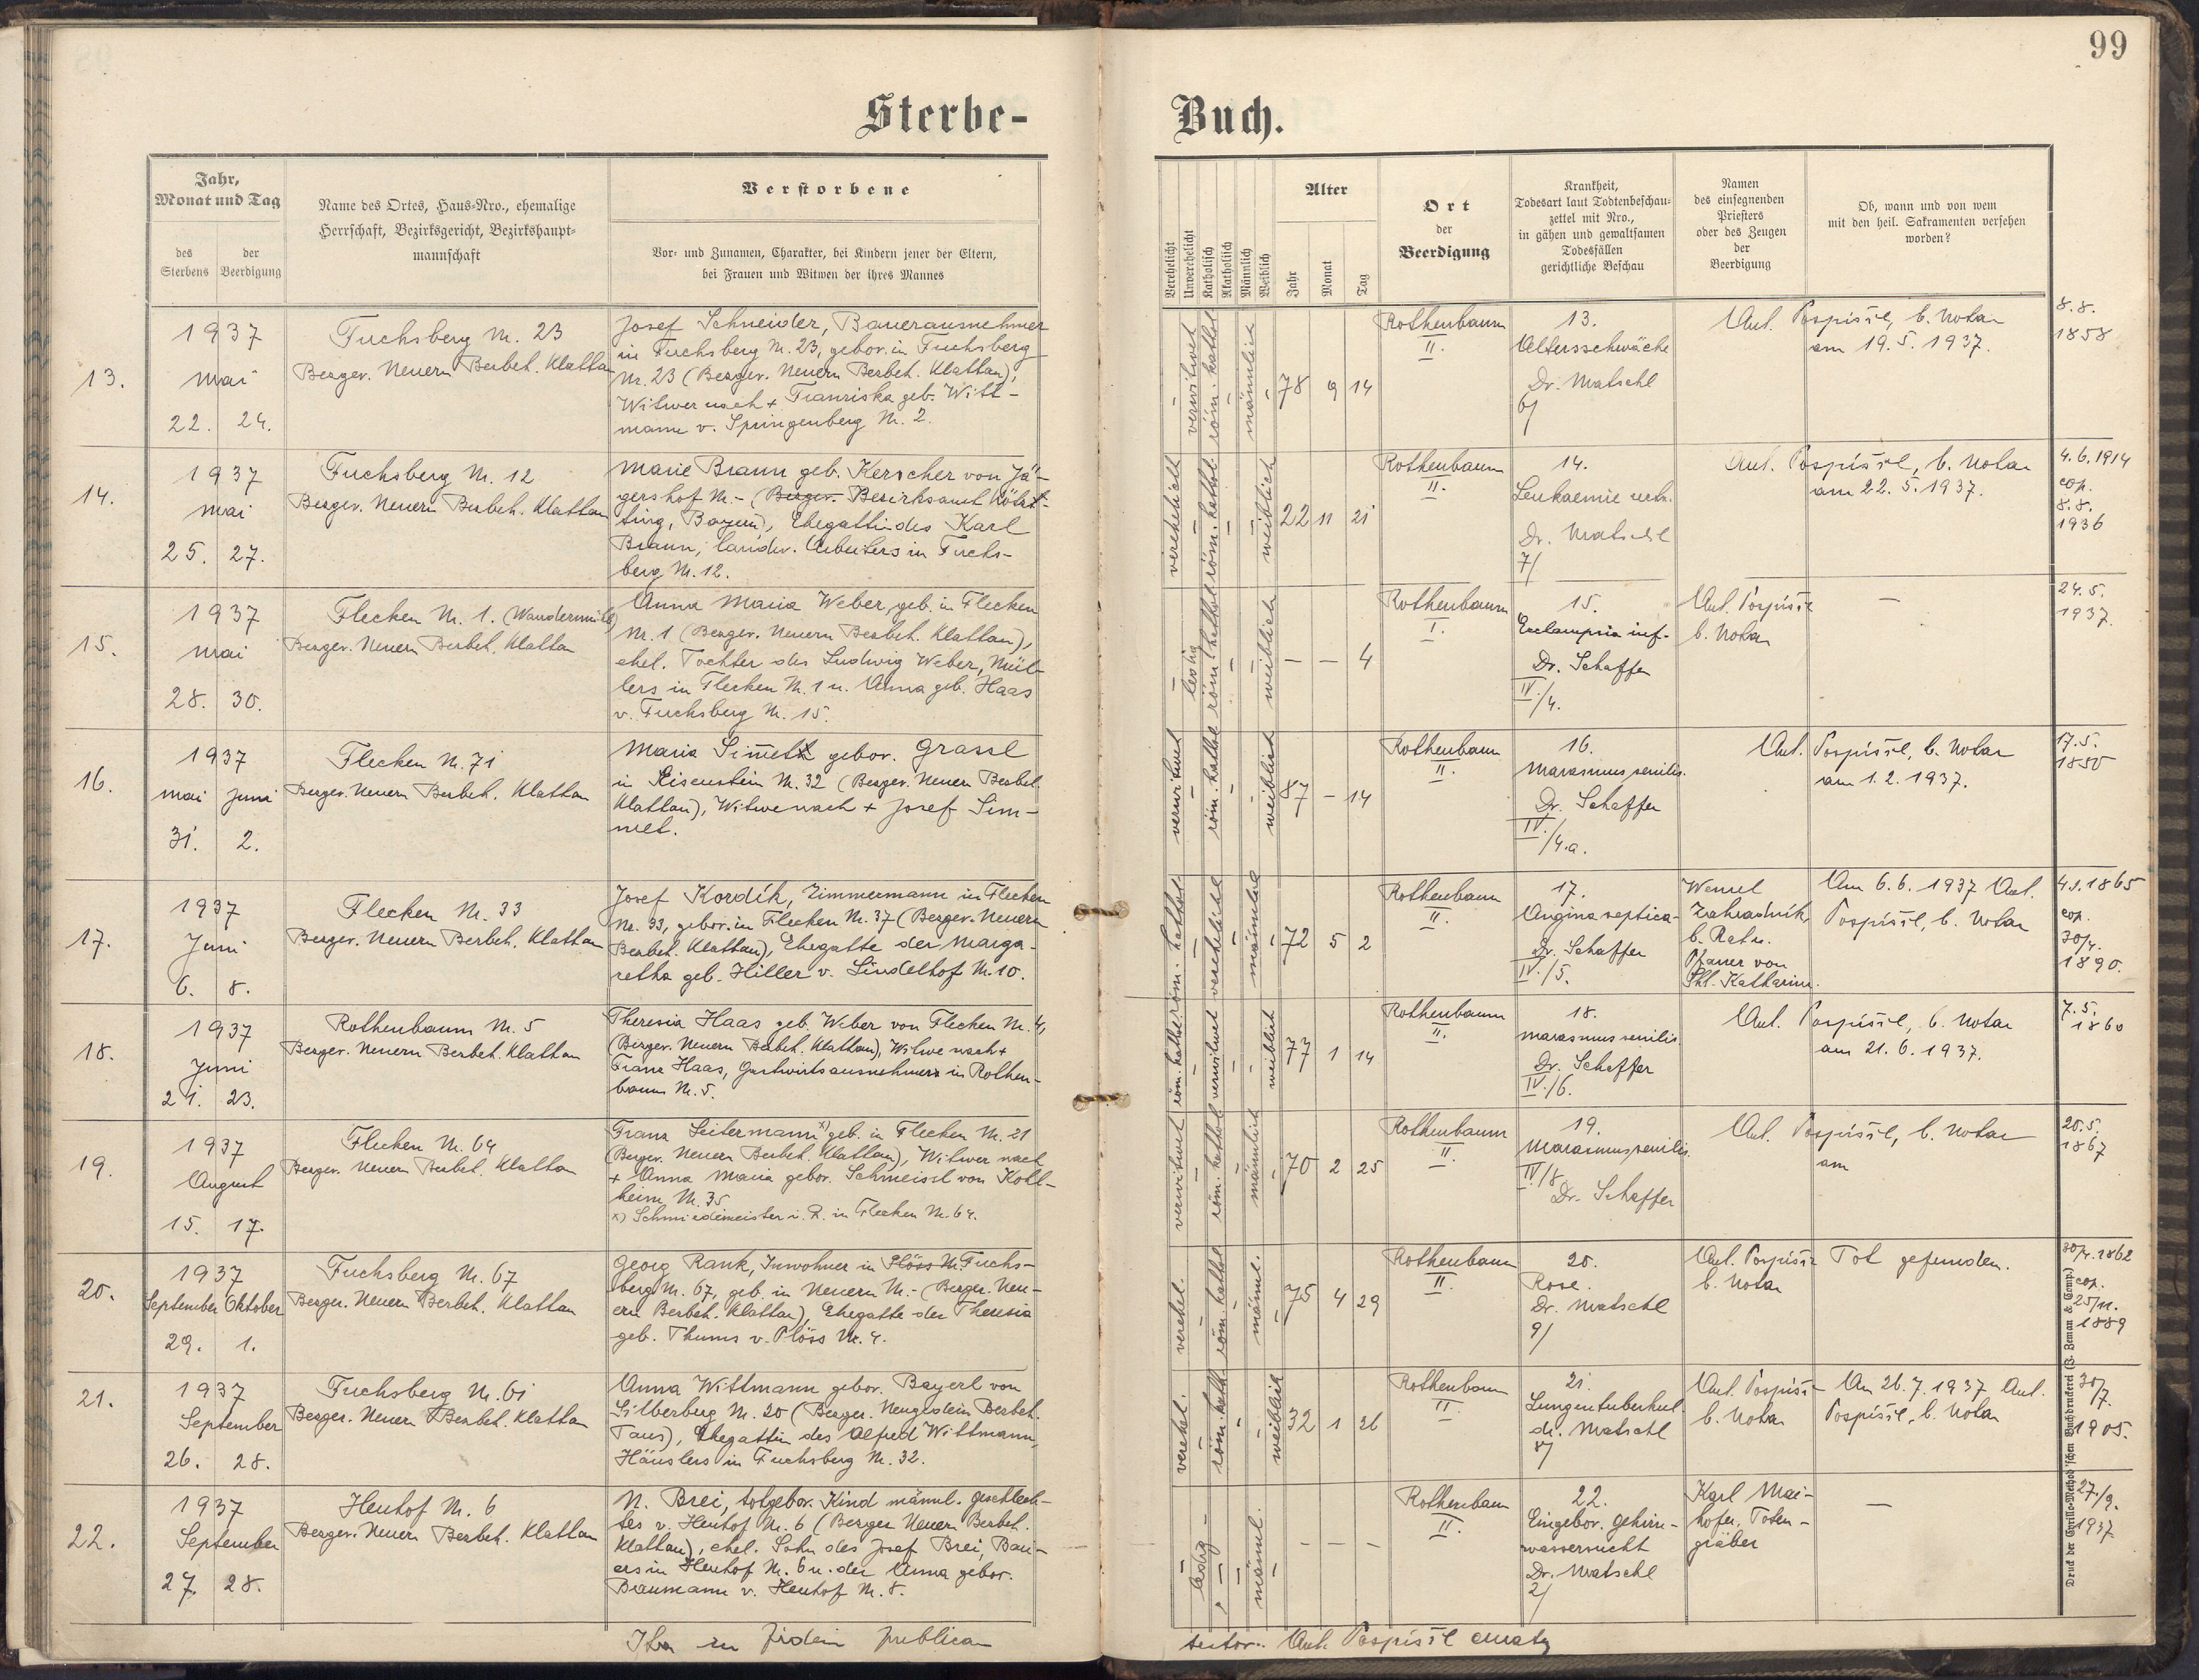 99
Sterbe-
Buch.
Jahr,
Monat und Tag
des
Sterbens
der
Beerdigung
Name des Ortes, Haus-Nro., ehemalige
Herrschaft, Bezirksgericht, Bezirkshaupt-
mannschaft
Verstorbene
Vor- und Zunamen, Charakter, bei Kindern jener der Eltern,
bei Frauen und Witwen der ihres Mannes
Verehelicht
Unverehelicht
Katholisch
Akatholisch
Männlich
Weiblich
Alter
Jahr
Monat
Tag
Ort
der
Beerdigung
Krankheit,
Todesart laut Todtenbeschau-
zettel mit Nro.,
in gähen und gewaltsamen
Todesfällen
gerichtliche Beschau
Namen
des einsegnenden
Priesters
oder des Zeugen
der
Beerdigung
Ob, wann und von wem
mit den heil. Sakramenten versehen
worden?
13.
1937
Mai
22. 24.
Fuchsberg Nr. 23
Bezger. Neuern Bezbeh. Klattau
Josef Schneider, Bauerausnehmer
in Fuchsberg Nr. 23, gebor. in Fuchsberg
Nr. 23 (Bezger. Neuern Bezbeh. Klattau),
Witwer nach + Franziska geb. Witt-
mann v. Springenberg Nr. 2.
verwitwet
röm. kathol
männlich
78 9 14
Rothenbaum
II.
13.
Altersschwäche
Dr. Matschl
6/
Ant. Pospíšil, b. Notar
am 19. 5. 1937.
8. 8.
1858
14.
1937
Mai
25. 27.
Fuchsberg Nr. 12
Bezger. Neuern Bezbeh. Klattau
Marie Braun geb. Kerscher von Jä-
gershof Nr. - (Bezger. Bezirksamt Kötz-
ting, Bayern), Ehegattin des Karl
Braun, landw. Arbeiters in Fuchs-
berg Nr. 12.
verehelicht
röm. kathol.
weiblich
22 11 21
Rothenbaum
II.
14.
Leukaemie
Dr. Matschl
7/
Ant. Pospíšil, b. Notar
am 22. 5. 1937.
4. 6. 1914
cop.
8. 8.
1936
15.
1937
Mai
28. 30.
Flecken Nr. 1. (Wandermühle)
Bezger. Neuern Bezbeh. Klattau
Anna Maria Weber, geb. in Flecken
Nr. 1 (Bezger. Neuern Bezbeh. Klattau),
ehel. Tochter des Ludwig Weber, Mül-
lers in Flecken Nr. 1 u. Anna geb. Haas
v. Fuchsberg Nr. 15.
ledig
röm. kathol
weiblich
- - 4
Rothenbaum
I.
15.
Ecclampsia inf.
Dr. Schaffer
IV./4.
Ant. Pospíšil
b. Notar
—
24. 5.
1937.
16.
1937
Mai Juni
31. 2.
Flecken Nr. 71
Bezger. Neuern Bezbeh. Klattau
Maria Simet gebor. Grassl
in Eisenstein Nr. 32 (Bezger. Neuern Bezbeh.
Klattau), Witwe nach + Josef Sim-
met.
verwitwet
röm. kathol
weiblich
87 - 14
Rothenbaum
II.
16.
Marasmus senilis.
Dr. Schaffer
IV./4.a.
Ant. Pospíšil, b. Notar
am 1. 2. 1937.
17. 5.
1850
17.
1937
Juni
6. 8.
Flecken Nr. 33
Bezger. Neuern Bezbeh. Klattau
Josef Kordík, Zimmermann in Flecken
Nr. 33, gebor. in Flecken Nr. 37 (Bezger. Neuern
Bezbeh. Klattau), Ehegatte der Marga-
retha geb. Hiller v. Lindelhof Nr. 10.
röm. kathol.
verehelicht
männlich
72 5 2
Rothenbaum
II.
17.
Angina septica
Dr. Schaffer
IV./5.
Wenzel
Zahradník,
b. Rat u.
Pfarrer von
St. Katharina.
Am 6. 6. 1937 Ant.
Pospíšil, b. Notar
4. 1. 1865
cop.
30/4.
1890.
18.
1937
Juni
21. 23.
Rothenbaum Nr. 5
Bezger. Neuern Bezbeh. Klattau
Theresia Haas geb. Weber von Flecken Nr. 4,
(Bezger. Neuern Bezbeh. Klattau), Witwe nach +
Franz Haas, Gastwirtsausnehmers in Rothen-
baum Nr. 5.
röm. kathol
verwitwet
weiblich
77 1 14
Rothenbaum
II.
18.
Marasmus senilis
Dr. Schaffer
IV./6.
Ant. Pospíšil, b. Notar
am 21. 6. 1937.
7. 5.
1860
19.
1937
August
15. 17.
Flecken Nr. 64
Bezger. Neuern Bezbeh. Klattau
Franz Leitermann x) geb. in Flecken Nr. 21
(Bezger. Neuern Bezbeh. Klattau), Witwer nach
+ Anna Maria gebor. Schmeissl von Kohl-
heim Nr. 35
x) Schmiedemeister i. R. in Flecken Nr. 64.
verwitwet
röm. kathol
männlich
70 2 25
Rothenbaum
II.
19.
Marasmus senilis
IV/8
Dr. Schaffer
Ant. Pospíšil, b. Notar
am
20. 5.
1867
20.
1937
September Oktober
29. 1.
Fuchsberg Nr. 67
Bezger. Neuern Bezbeh. Klattau
Georg Rank, Inwohner in Plöss Nr. Fuchs-
berg Nr. 67, geb. in Neuern Nr. - (Bezger. Neu-
ern Bezbeh. Klattau), Ehegatte der Theresia
geb. Thums v. Plöss Nr. 4.
verehel.
röm. kathol
männl.
75 4 29
Rothenbaum
II.
20.
Rose.
Dr. Matschl
9/
Ant. Pospíšil
b. Notar
Tot gefunden.
30/4. 1862
cop.
25/11.
1889
21.
1937
September
26. 28.
Fuchsberg Nr. 61
Bezger. Neuern Bezbeh. Klattau
Anna Wittmann gebor. Bayerl von
Silberberg Nr. 20 (Bezger. Neugedein Bezbeh.
Taus), Ehegattin des Alfred Wittmann,
Häuslers in Fuchsberg Nr. 32.
verehel.
röm. kath
weiblich
32 1 26
Rothenbaum
II
21.
Lungentuberkul.
dr. Matschl
8/
Ant. Pospíšil
b. Notar
Am 26. 7. 1937 Ant.
Pospíšil, b. Notar
30/7.
1905.
22.
1937
September
27. 28.
Heuhof Nr. 6
Bezger. Neuern Bezbeh. Klattau
N. Brei, totgebor. Kind männl. Geschlech-
tes v. Heuhof Nr. 6 (Bezger Neuern Bezbeh.
Klattau), ehel. Sohn des Josef Brei, Bau-
ers in Heuhof Nr. 6 u. der Anna gebor.
Baumann v. Heuhof Nr. 8.
ledig
männl.
- - -
Rothenbaum
II.
22.
Eingebor. Gehirn-
wassersucht
Dr. Matschl
2/
Karl Mai-
hofer, Toten-
gräber
—
27./9.
1937
Ita in fidem publicam
testor: Ant. Pospíšil
Druck der Cyrillo-Method'schen Buchdruckerei (J. Zeman & Comp.)